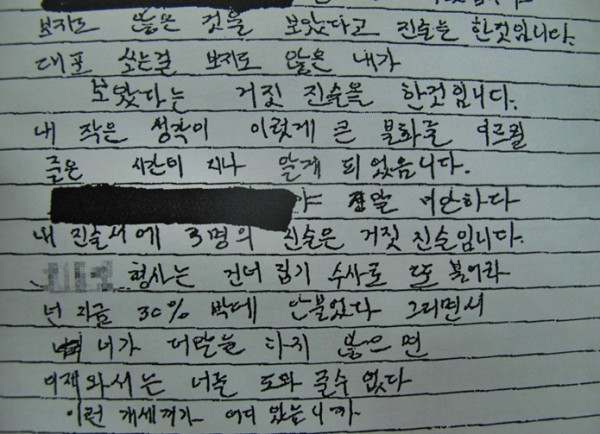 보지도 않은 것을 보았다고 진술을 한것입니다.
대포 쏘는걸 보지도 않은 내가
보았다는 거짓 진술을 한것입니다.
내 작은 생각이 이렇게 큰 불화를 이르킬
줄은 시간이 지나 알게 되었음니다.
야 정말 미안하다
내 진술서에 3명의 진술은 거짓 진술입니다.
형사는 건너 립기 수사로 또 불어라
넌 지금 30% 밖에 안불었다 그러면서
너가 더말을 하지 않으면
이제와서는 너를 도와 줄수 없다
이런 개세끼가 어디 있습니까